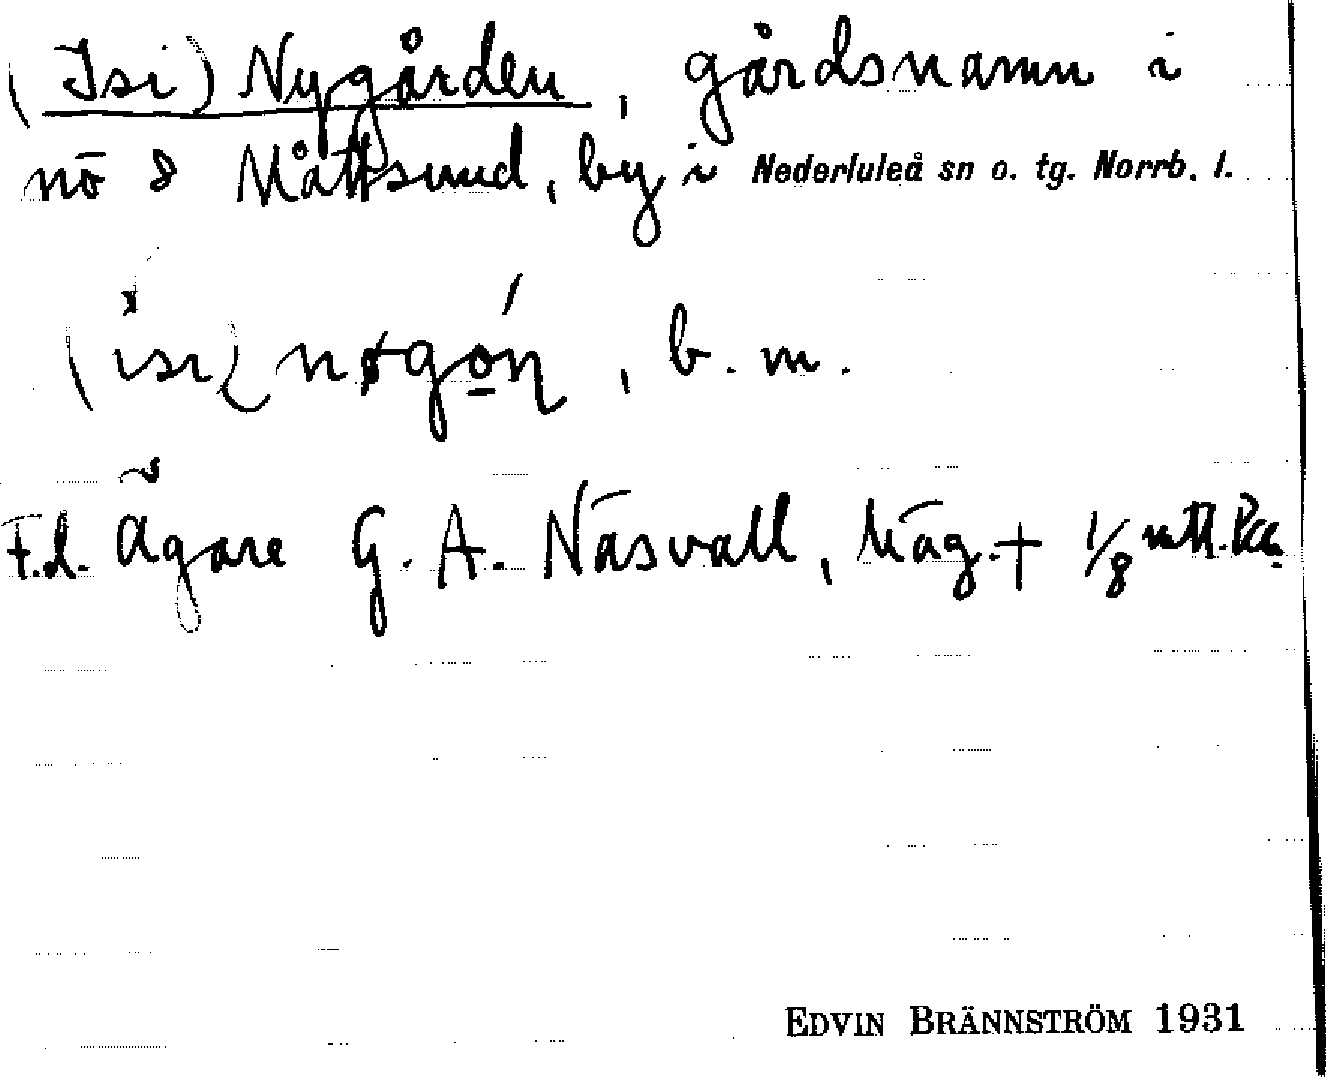 (Isi) Nygården, gårdsnamn i
nö 8 Måttsund, by i Nederluleå sn o. tg. Norrb. l.
(isi) nøgo̱ń, b. m.
F.d. Ägare G. A. Näsvall, Mäg. + 1/8 mtl.
EDVIN BRÄNNSTRÖM 1931